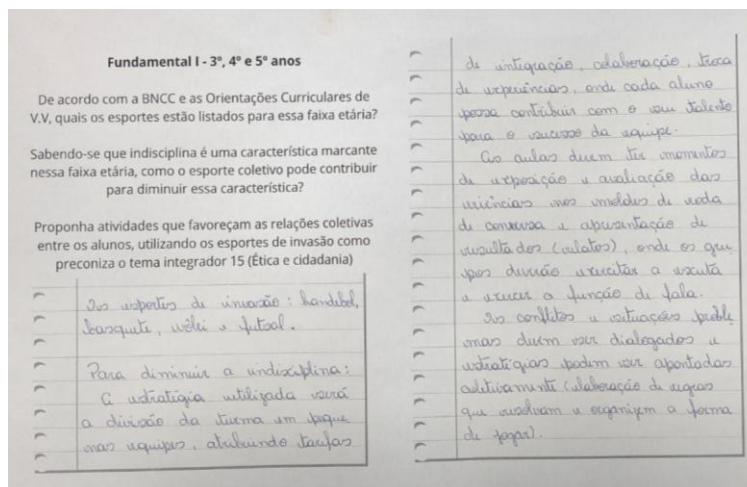 Fundamental I - 3º, 4º e 5º anos
De acordo com a BNCC e as Orientações Curriculares de
V.V, quais os esportes estão listados para essa faixa etária?
Sabendo-se que indisciplina é uma característica marcante
nessa faixa etária, como o esporte coletivo pode contribuir
para diminuir essa característica?
Proponha atividades que favoreçam as relações coletivas
entre os alunos, utilizando os esportes de invasão como
preconiza o tema integrador 15 (Ética e cidadania)
Os esportes de invasão: handebol,
basquete, vôlei e futsal.
Para diminuir a indisciplina:
A estratégia utilizada será
a divisão da turma em peque
nas equipes, atribuindo tarefas
de integração, colaboração, troca
de experiências, onde cada aluno
possa contribuir com o seu talento
para o sucesso da equipe.
As aulas devem ter momentos
de exposição e avaliação das
vivências nos moldes de roda
de conversa e apresentação de
resultados (relatos), onde os gru
pos deverão exercitar a escuta
e exercer a função de fala.
Os conflitos e situações proble
mas devem ser dialogados e
estratégias podem ser apontadas
coletivamente (elaboração de regras
que resolvam e organizem a forma
de jogar).